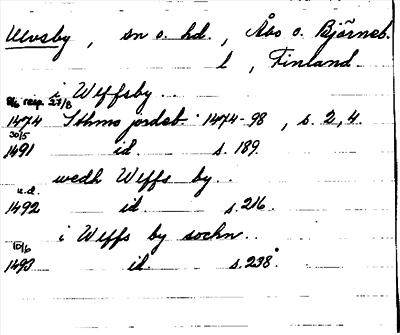 Ulvsby, sn o. hd., Åbo o. Björneb.
l, Finland.
i Wlffsby..
8/6 resp. 27/8
1474 Sthms jordeb. 1474-98, s. 2, 4.
30/5
1491 id. s. 189.
wedh Wlffs by..
u.d.
1492 id s. 216.
i Wlffs by sochn..
10/6
1493 id s. 238.